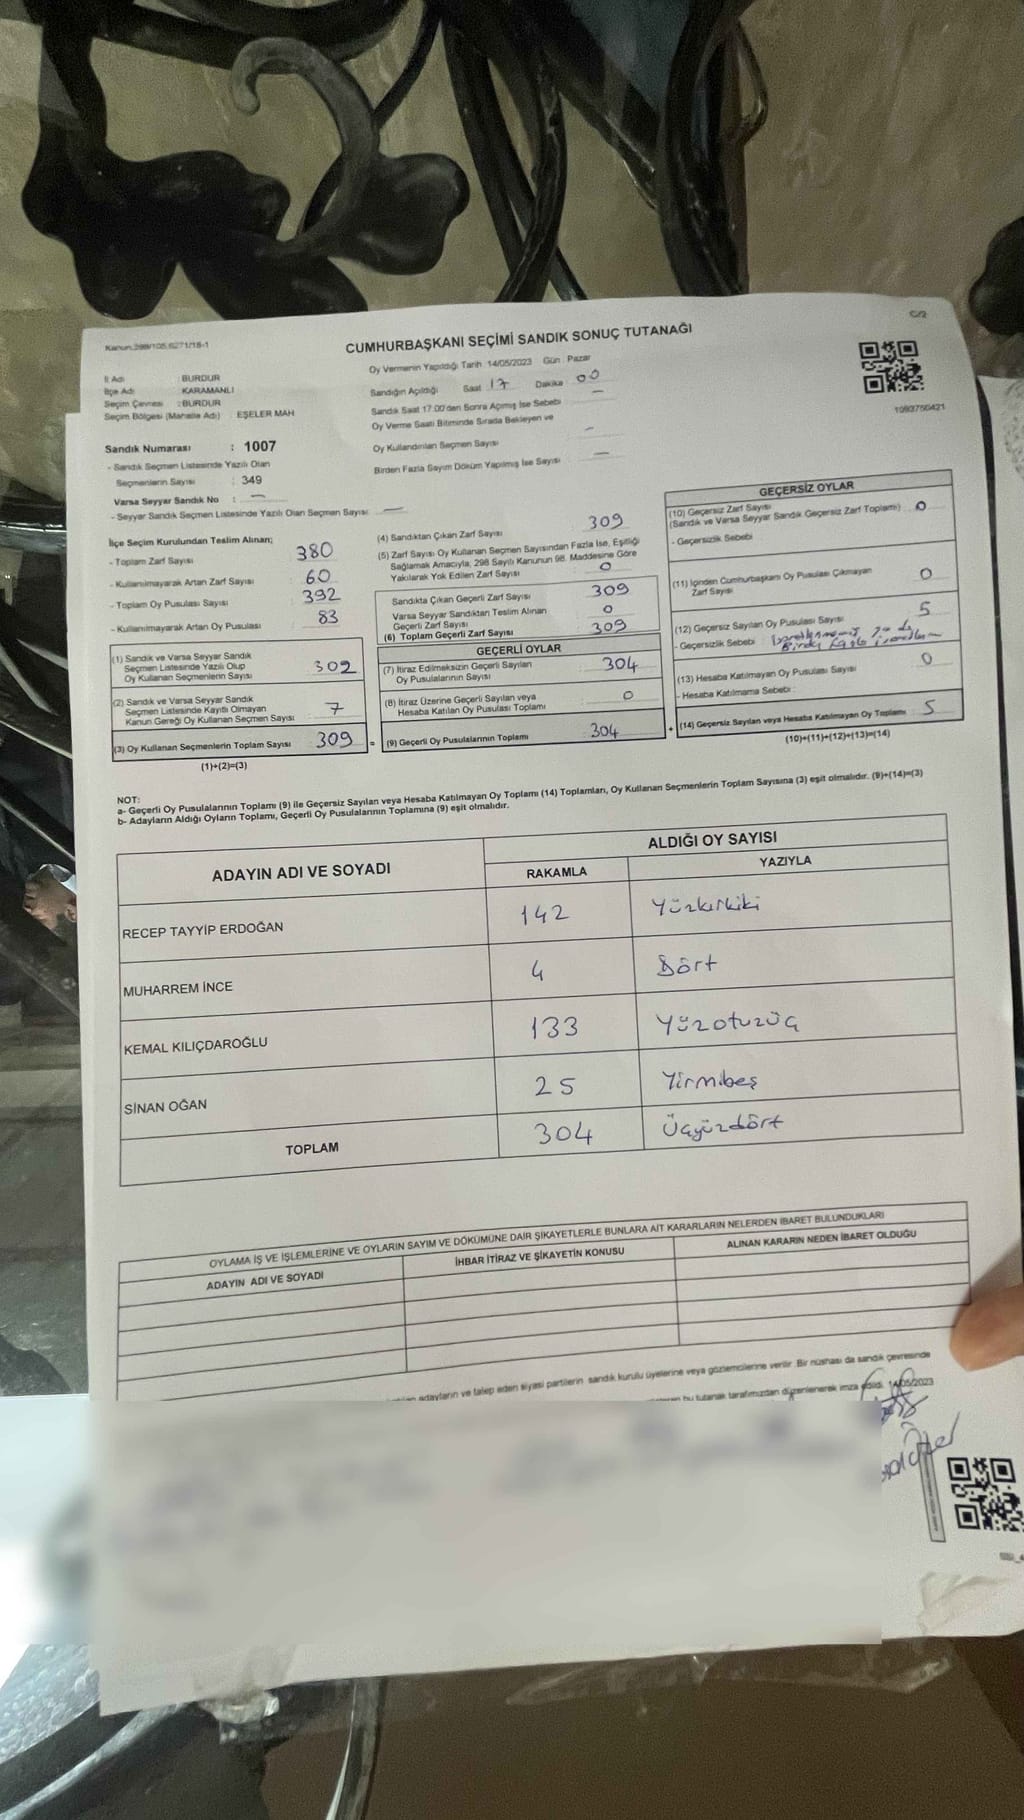 C/2
Kanun:298/105,6271/18-1
CUMHURBAŞKANI SEÇİMİ SANDIK SONUÇ TUTANAĞI
1093750421
İl Adı : BURDUR
İlçe Adı : KARAMANLI
Seçim Çevresi : BURDUR
Seçim Bölgesi (Mahalle Adı) EŞELER MAH
Sandık Numarası : 1007
- Sandık Seçmen Listesinde Yazılı Olan
Seçmenlerin Sayısı : 349
Varsa Seyyar Sandık No : —
- Seyyar Sandık Seçmen Listesinde Yazılı Olan Seçmen Sayısı —
Oy Vermenin Yapıldığı Tarih 14/05/2023 Gün : Pazar
Sandığın Açıldığı Saat 17 Dakika 00
Sandık Saat 17.00'den Sonra Açılmış İse Sebebi —
Oy Verme Saati Bitiminde Sırada Bekleyen ve
Oy Kullandırılan Seçmen Sayısı —
Birden Fazla Sayım Döküm Yapılmış İse Sayısı —
İlçe Seçim Kurulundan Teslim Alınan;
- Toplam Zarf Sayısı 380
- Kullanılmayarak Artan Zarf Sayısı 60
- Toplam Oy Pusulası Sayısı 392
- Kullanılmayarak Artan Oy Pusulası 83
(1) Sandık ve Varsa Seyyar Sandık
Seçmen Listesinde Yazılı Olup
Oy Kullanan Seçmenlerin Sayısı 302
(2) Sandık ve Varsa Seyyar Sandık
Seçmen Listesinde Kayıtlı Olmayan
Kanun Gereği Oy Kullanan Seçmen Sayısı 7
(3) Oy Kullanan Seçmenlerin Toplam Sayısı 309
(1)+(2)=(3)
(4) Sandıktan Çıkan Zarf Sayısı 309
(5) Zarf Sayısı Oy Kullanan Seçmen Sayısından Fazla İse, Eşitliği
Sağlamak Amacıyla; 298 Sayılı Kanunun 98. Maddesine Göre
Yakılarak Yok Edilen Zarf Sayısı 0
Sandıkta Çıkan Geçerli Zarf Sayısı 309
Varsa Seyyar Sandıktan Teslim Alınan
Geçerli Zarf Sayısı 0
(6) Toplam Geçerli Zarf Sayısı 309
GEÇERLİ OYLAR
(7) İtiraz Edilmeksizin Geçerli Sayılan
Oy Pusulalarının Sayısı 304
(8) İtiraz Üzerine Geçerli Sayılan veya
Hesaba Katılan Oy Pusulası Toplamı 0
= (9) Geçerli Oy Pusulalarının Toplamı 304
GEÇERSİZ OYLAR
(10) Geçersiz Zarf Sayısı
(Sandık ve Varsa Seyyar Sandık Geçersiz Zarf Toplamı) 0
- Geçersizlik Sebebi
(11) İçinden Cumhurbaşkanı Oy Pusulası Çıkmayan
Zarf Sayısı 0
(12) Geçersiz Sayılan Oy Pusulası Sayısı 5
- Geçersizlik Sebebi :
(13) Hesaba Katılmayan Oy Pusulası Sayısı 0
- Hesaba Katılmama Sebebi :
+ (14) Geçersiz Sayılan veya Hesaba Katılmayan Oy Toplamı 5
(10)+(11)+(12)+(13)=(14)
NOT:
a- Geçerli Oy Pusulalarının Toplamı (9) ile Geçersiz Sayılan veya Hesaba Katılmayan Oy Toplamı (14) Toplamları, Oy Kullanan Seçmenlerin Toplam Sayısına (3) eşit olmalıdır. (9)+(14)=(3)
b- Adayların Aldığı Oyların Toplamı, Geçerli Oy Pusulalarının Toplamına (9) eşit olmalıdır.
ADAYIN ADI VE SOYADI
ALDIĞI OY SAYISI
RAKAMLA YAZIYLA
RECEP TAYYİP ERDOĞAN 142 Yüzkırkiki
MUHARREM İNCE 4 Dört
KEMAL KILIÇDAROĞLU 133 Yüzotuzüç
SİNAN OĞAN 25 Yirmibeş
TOPLAM 304 Üçyüzdört
OYLAMA İŞ VE İŞLEMLERİNE VE OYLARIN SAYIM VE DÖKÜMÜNE DAİR ŞİKAYETLERLE BUNLARA AİT KARARLARIN NELERDEN İBARET BULUNDUKLARI
ADAYIN ADI VE SOYADI İHBAR İTİRAZ VE ŞİKAYETİN KONUSU ALINAN KARARIN NEDEN İBARET OLDUĞU
adayların ve talep eden siyasi partilerin sandık kurulu üyelerine veya gözlemcilerine verilir. Bir nüshası da sandık çevresinde
bu tutanak tarafımızdan düzenlenerek imza edildi. 14/05/2023